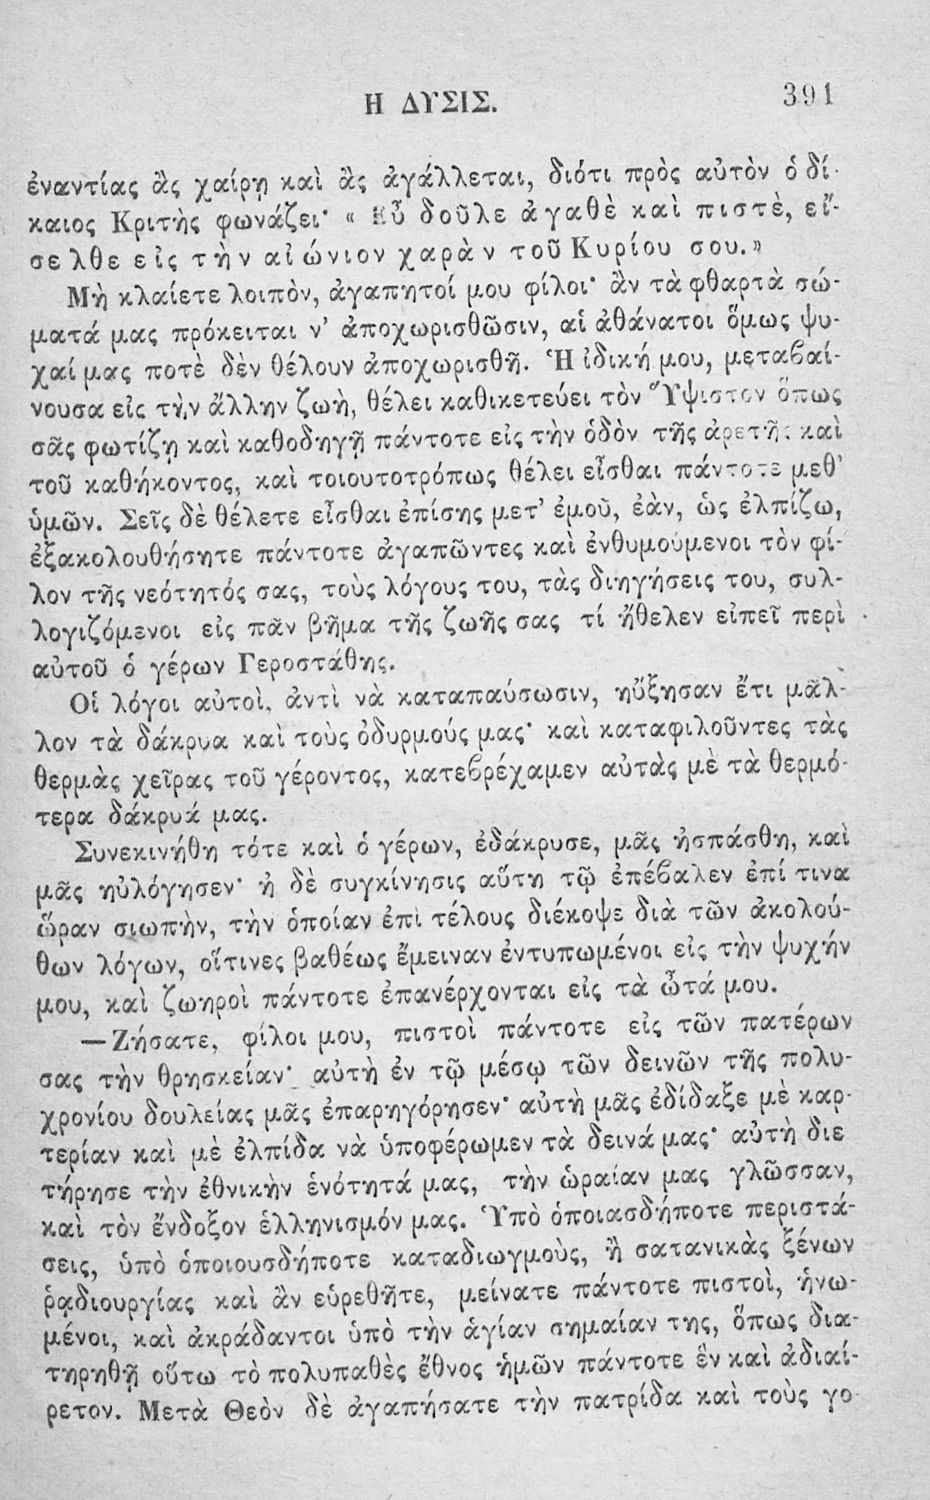 Η ΔΥΣΙΣ. 391
ἐναντίας ἂς χαίρῃ καὶ ἂς ἀγάλλεται, διότι πρὸς αὐτὸν ὁ δί-
καιος Κριτὴς φωνάζει· « Εὖ δοῦλε ἀγαθὲ καὶ πιστὲ, εἴ-
σελθε εἰς τὴν αἰώνιον χαρὰν τοῦ Κυρίου σου.»
Μὴ κλαίετε λοιπὸν, ἀγαπητοί μου φίλοι· ἂν τὰ φθαρτὰ σώ-
ματά μας πρόκειται ν’ ἀποχωρισθῶσιν, αἱ ἀθάνατοι ὅμως ψυ-
χαί μας ποτὲ δὲν θέλουν ἀποχωρισθῆ. Ἡ ἰδική μου, μεταβαί-
νουσα εἰς τὴν ἄλλην ζωὴ, θέλει καθικετεύει τὸν Ὕψιστον ὅπως
σᾶς φωτίζῃ καὶ καθοδηγῇ πάντοτε εἰς τὴν ὁδὸν τῆς ἀρετῆς καὶ
τοῦ καθήκοντος, καὶ τοιουτοτρόπως θέλει εἶσθαι πάντοτε μεθ’
ὑμῶν. Σεῖς δὲ θέλετε εἶσθαι ἐπίσης μετ’ ἐμοῦ, ἐὰν, ὡς ἐλπίζω,
ἐξακολουθήσητε πάντοτε ἀγαπῶντες καὶ ἐνθυμούμενοι τὸν φί-
λον τῆς νεότητός σας, τοὺς λόγους του, τὰς διηγήσεις του, συλ-
λογιζόμενοι εἰς πᾶν βῆμα τῆς ζωῆς σας τί ἤθελεν εἰπεῖ περὶ
αὐτοῦ ὁ γέρων Γεροστάθης.
Οἱ λόγοι αὐτοὶ, ἀντὶ νὰ καταπαύσωσιν, ηὔξησαν ἔτι μᾶλ-
λον τὰ δάκρυα καὶ τοὺς ὀδυρμούς μας· καὶ καταφιλοῦντες τὰς
θερμὰς χεῖρας τοῦ γέροντος, κατεβρέχαμεν αὐτὰς μὲ τὰ θερμό-
τερα δάκρυά μας.
Συνεκινήθη τότε καὶ ὁ γέρων, ἐδάκρυσε, μᾶς ἠσπάσθη, καὶ
μᾶς ηὐλόγησεν· ἡ δὲ συγκίνησις αὕτη τῷ ἐπέβαλεν ἐπί τινα
ὥραν σιωπὴν, τὴν ὁποίαν ἐπὶ τέλους διέκοψε διὰ τῶν ἀκολού-
θων λόγων, οἵτινες βαθέως ἔμειναν ἐντυπωμένοι εἰς τὴν ψυχήν
μου, καὶ ζωηροὶ πάντοτε ἐπανέρχονται εἰς τὰ ὦτά μου.
—Ζήσατε, φίλοι μου, πιστοὶ πάντοτε εἰς τῶν πατέρων
σας τὴν θρησκείαν· αὐτὴ ἐν τῷ μέσῳ τῶν δεινῶν τῆς πολυ-
χρονίου δουλείας μᾶς ἐπαρηγόρησεν· αὐτὴ μᾶς ἐδίδαξε μὲ καρ-
τερίαν καὶ μὲ ἐλπίδα νὰ ὑποφέρωμεν τὰ δεινά μας· αὐτὴ διε
τήρησε τὴν ἐθνικὴν ἑνότητά μας, τὴν ὡραίαν μας γλῶσσαν,
καὶ τὸν ἔνδοξον ἑλληνισμόν μας. Ὑπὸ ὁποιασδήποτε περιστά-
σεις, ὑπὸ ὁποιουσδήποτε καταδιωγμοὺς, ἢ σατανικὰς ξένων
ῥᾳδιουργίας καὶ ἂν εὑρεθῆτε, μείνατε πάντοτε πιστοὶ, ἡνω-
μένοι, καὶ ἀκράδαντοι ὑπὸ τὴν ἁγίαν σημαίαν της, ὅπως δια-
τηρηθῇ οὕτω τὸ πολυπαθὲς ἔθνος ἡμῶν πάντοτε ἓν καὶ ἀδιαί-
ρετον. Μετὰ Θεὸν δὲ ἀγαπήσατε τὴν πατρίδα καὶ τοὺς γο